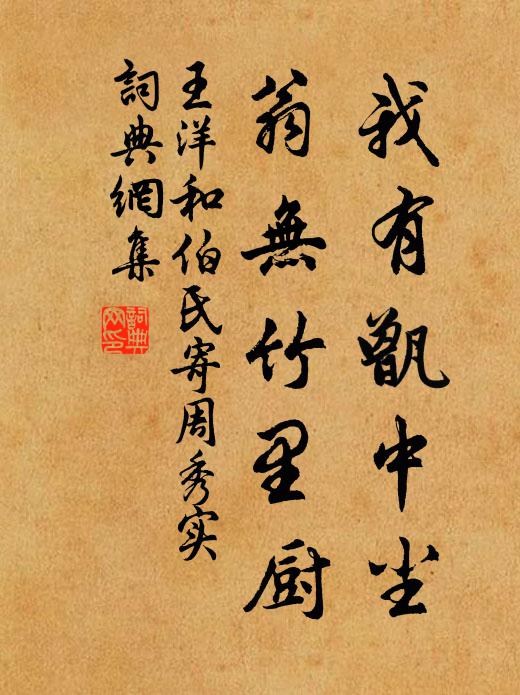 我有甑中尘
翁無竹里厨
王洋和伯氏寄周秀实
詞典網集
詞典网印